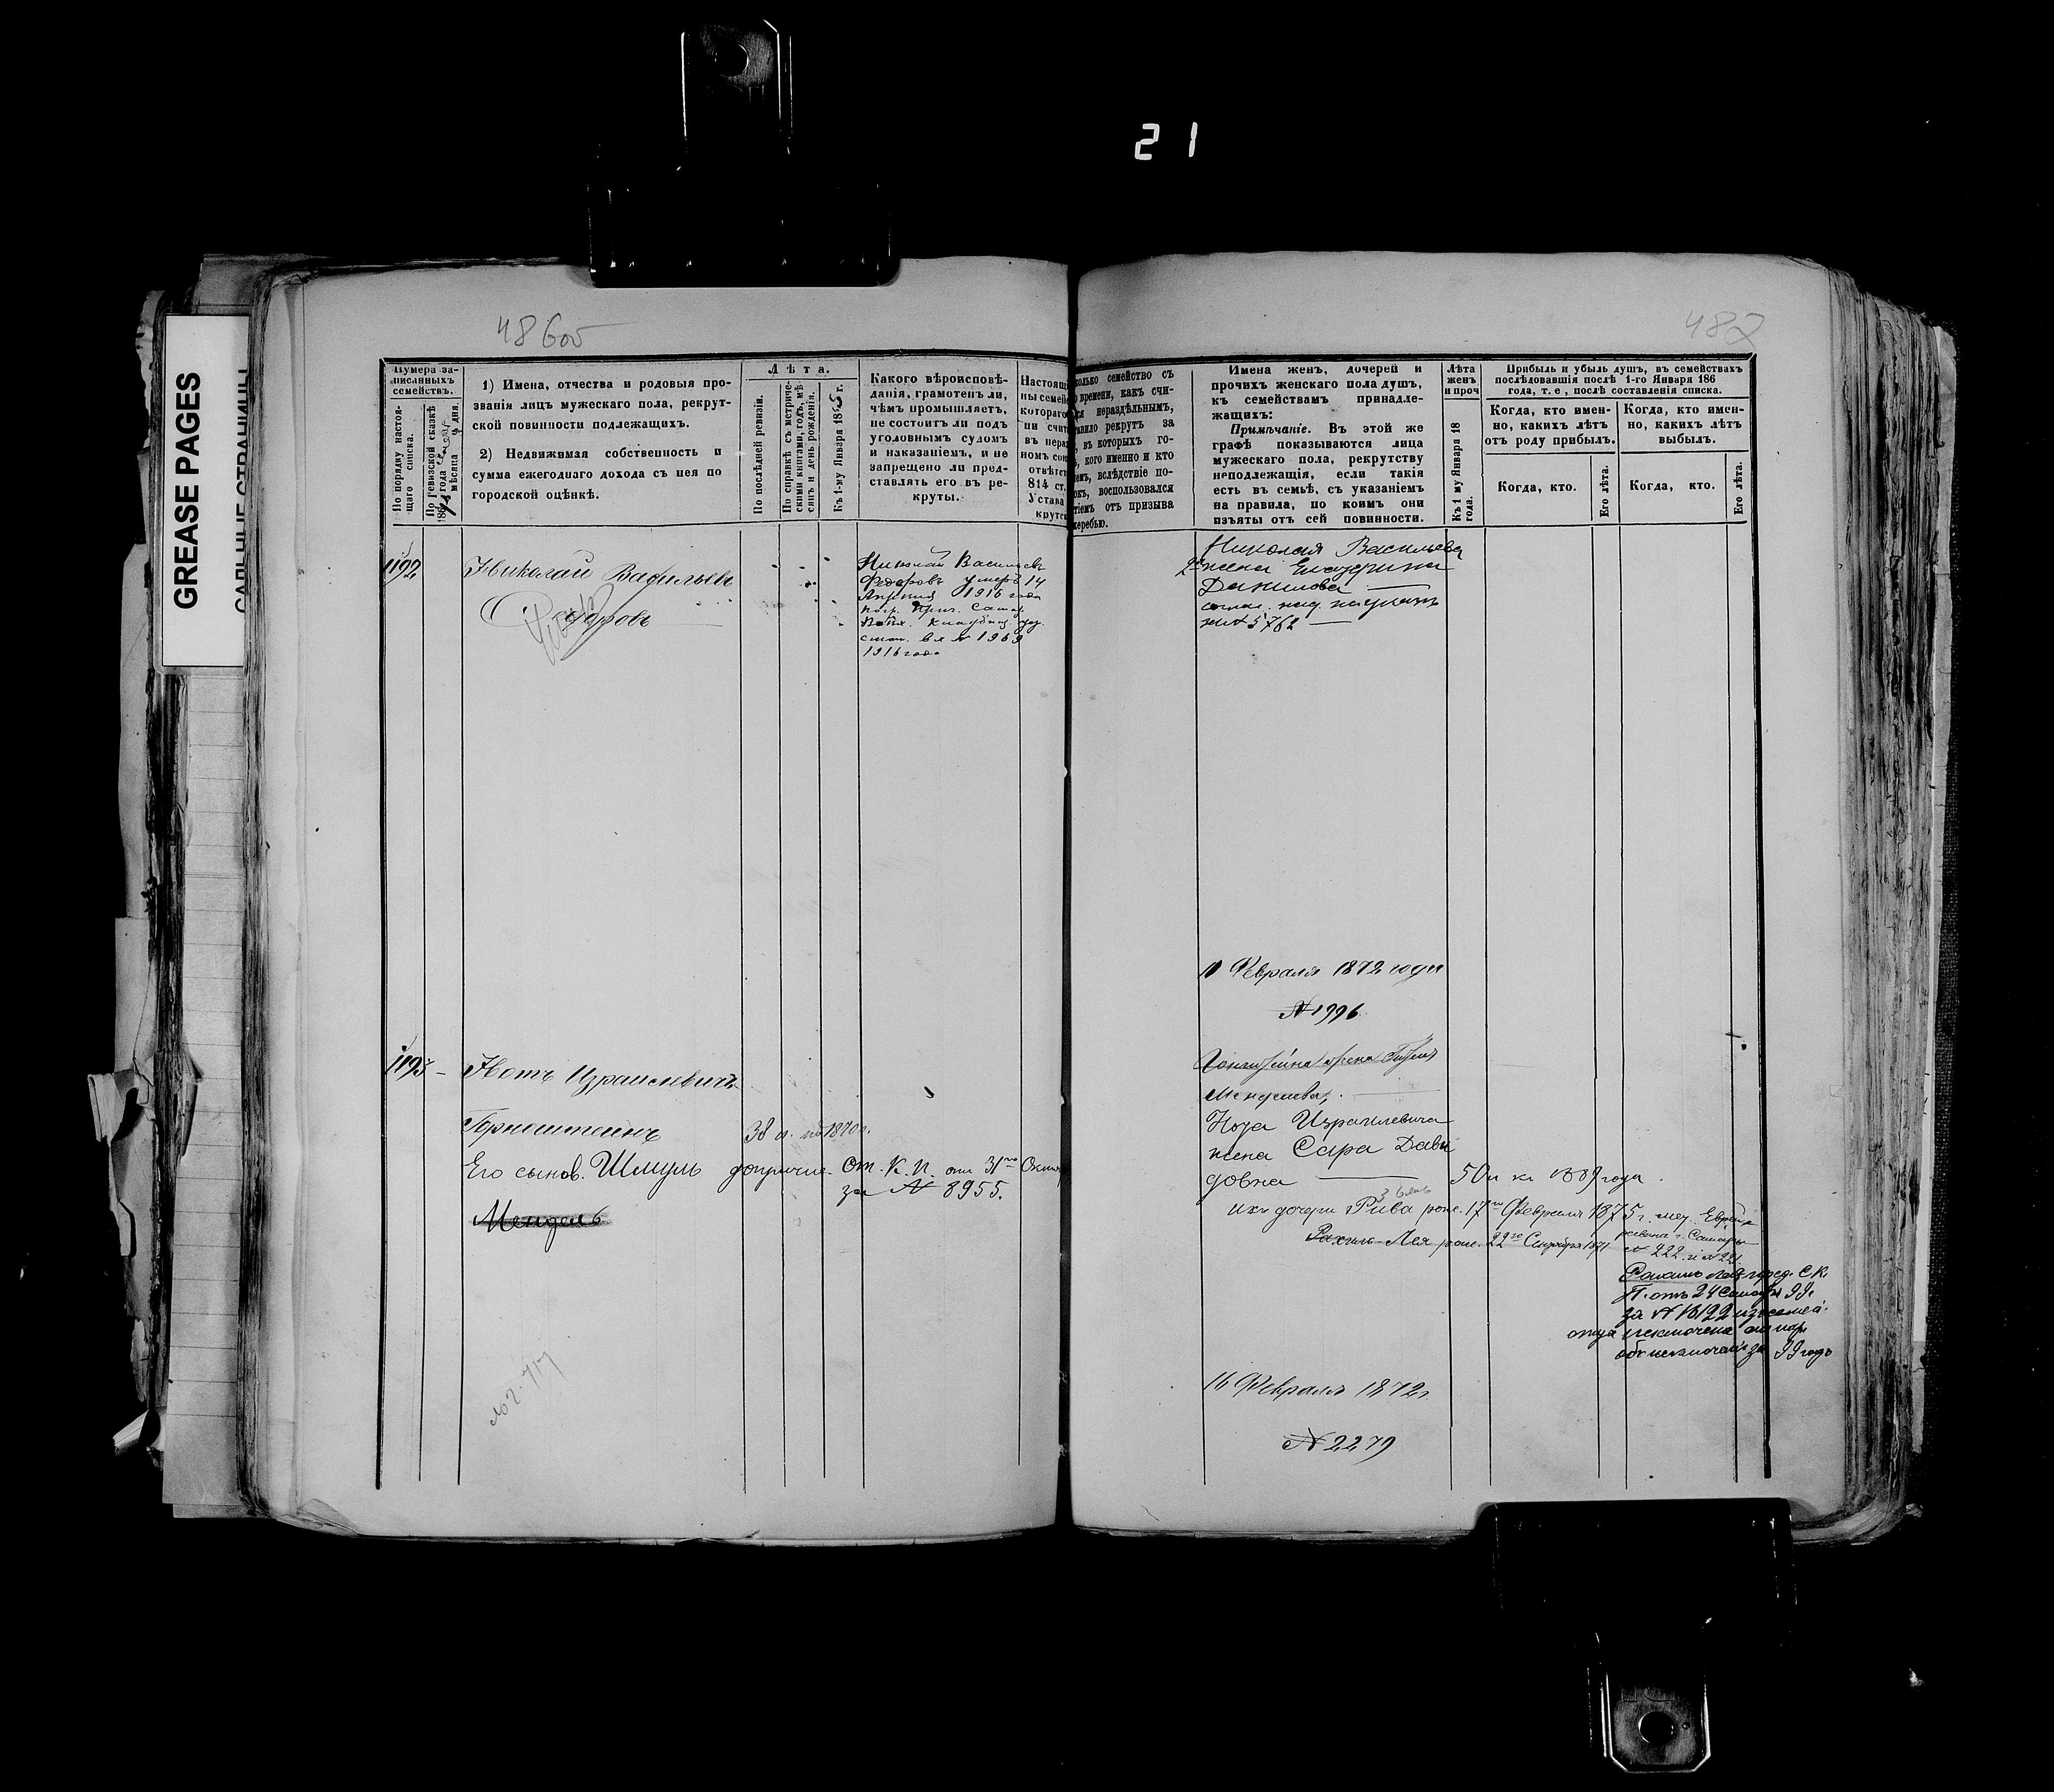 21
GREASE PAGES
САЛЬНЫЕ СТРАНИЦЫ
486об
487
Нумера за-
писанныхъ
семействъ.
По порядку настоя-
щаго списка.
По ревизской сказкѣ
186 года
мѣсяца дня.
1) Имена, отчества и родовыя про-
званія лицъ мужескаго пола, рекрут-
ской повинности подлежащихъ.
2) Недвижимая собственность и
сумма ежегоднаго дохода съ нея по
городской оцѣнкѣ.
Лѣта.
По послѣдней ревизіи.
По справкѣ съ метриче-
скими книгами, годъ, мѣ-
сяцъ и день рожденія.
Къ 1-му Января 18 г.
Какого вѣроисповѣ-
данія, грамотенъ ли,
чѣмъ промышляетъ,
не состоитъ ли подъ
уголовнымъ судомъ
и наказаніемъ, и не
запрещено ли пред-
ставлять его въ ре-
круты.
Настоящ
ны семе
котораго
ни счит
въ нера
номъ со
отвѣтс
814 ст.
Устава
крутс
колько семейство съ
о времени, какъ счи-
ся нераздѣльнымъ,
авило рекрутъ за
, въ которыхъ го-
, кого именно и кто
емъ, вслѣдствіе по-
окъ, воспользовался
тіемъ отъ призыва
жеребью.
Имена женъ, дочерей и
прочихъ женскаго пола душъ,
къ семействамъ принадле-
жащихъ:
Примѣчаніе. Въ этой же
графѣ показываются лица
мужескаго пола, рекрутству
неподлежащія, если такія
есть въ семьѣ, съ указаніемъ
на правила, по коимъ они
изъяты отъ сей повинности.
Лѣта
женъ
и проч
Къ 1 му Января 18
года.
Прибыль и убыль душъ, въ семействахъ
послѣдовавшія послѣ 1-го Января 186
года, т. е., послѣ составленія списка.
Когда, кто имен-
но, какихъ лѣтъ
отъ роду прибылъ.
Когда, кто имен-
но, какихъ лѣтъ
выбылъ.
Когда, кто.
Его лѣта.
Когда, кто.
Его лѣта.
1192
Николай Васильевъ
Федоровъ
Николай Васильевъ
Федоровъ умеръ 14
Апрѣля 1916 года
№ 1969
1916 года
Николая Васильева
2я жена Екатерина
Данилова
№ 5762
11 Февраля 1872 года
№ 1996
1193
Нотъ Израилевичъ
Горнштейнъ
38 л. по 1870 г.
Его сынов. Шмуль допричис. от. К. П. отъ 31го Октяб
за № 8955.
Мендель
жена
Менделева,
Нота Израилевича
жена Сара Давы
довна 50 л къ 1889 года.
ихъ дочери Рива рож. 17го Февраля 1875 г.
Рахиль-Лея рож. 22го Сентября 1871
равина г. Самары
№ 222 и № 221
Рахиль Лея С К.
П. отъ 24 99.
за № 16122
отца исключена
99 годъ
16 Февраля 1872 г.
№ 2279